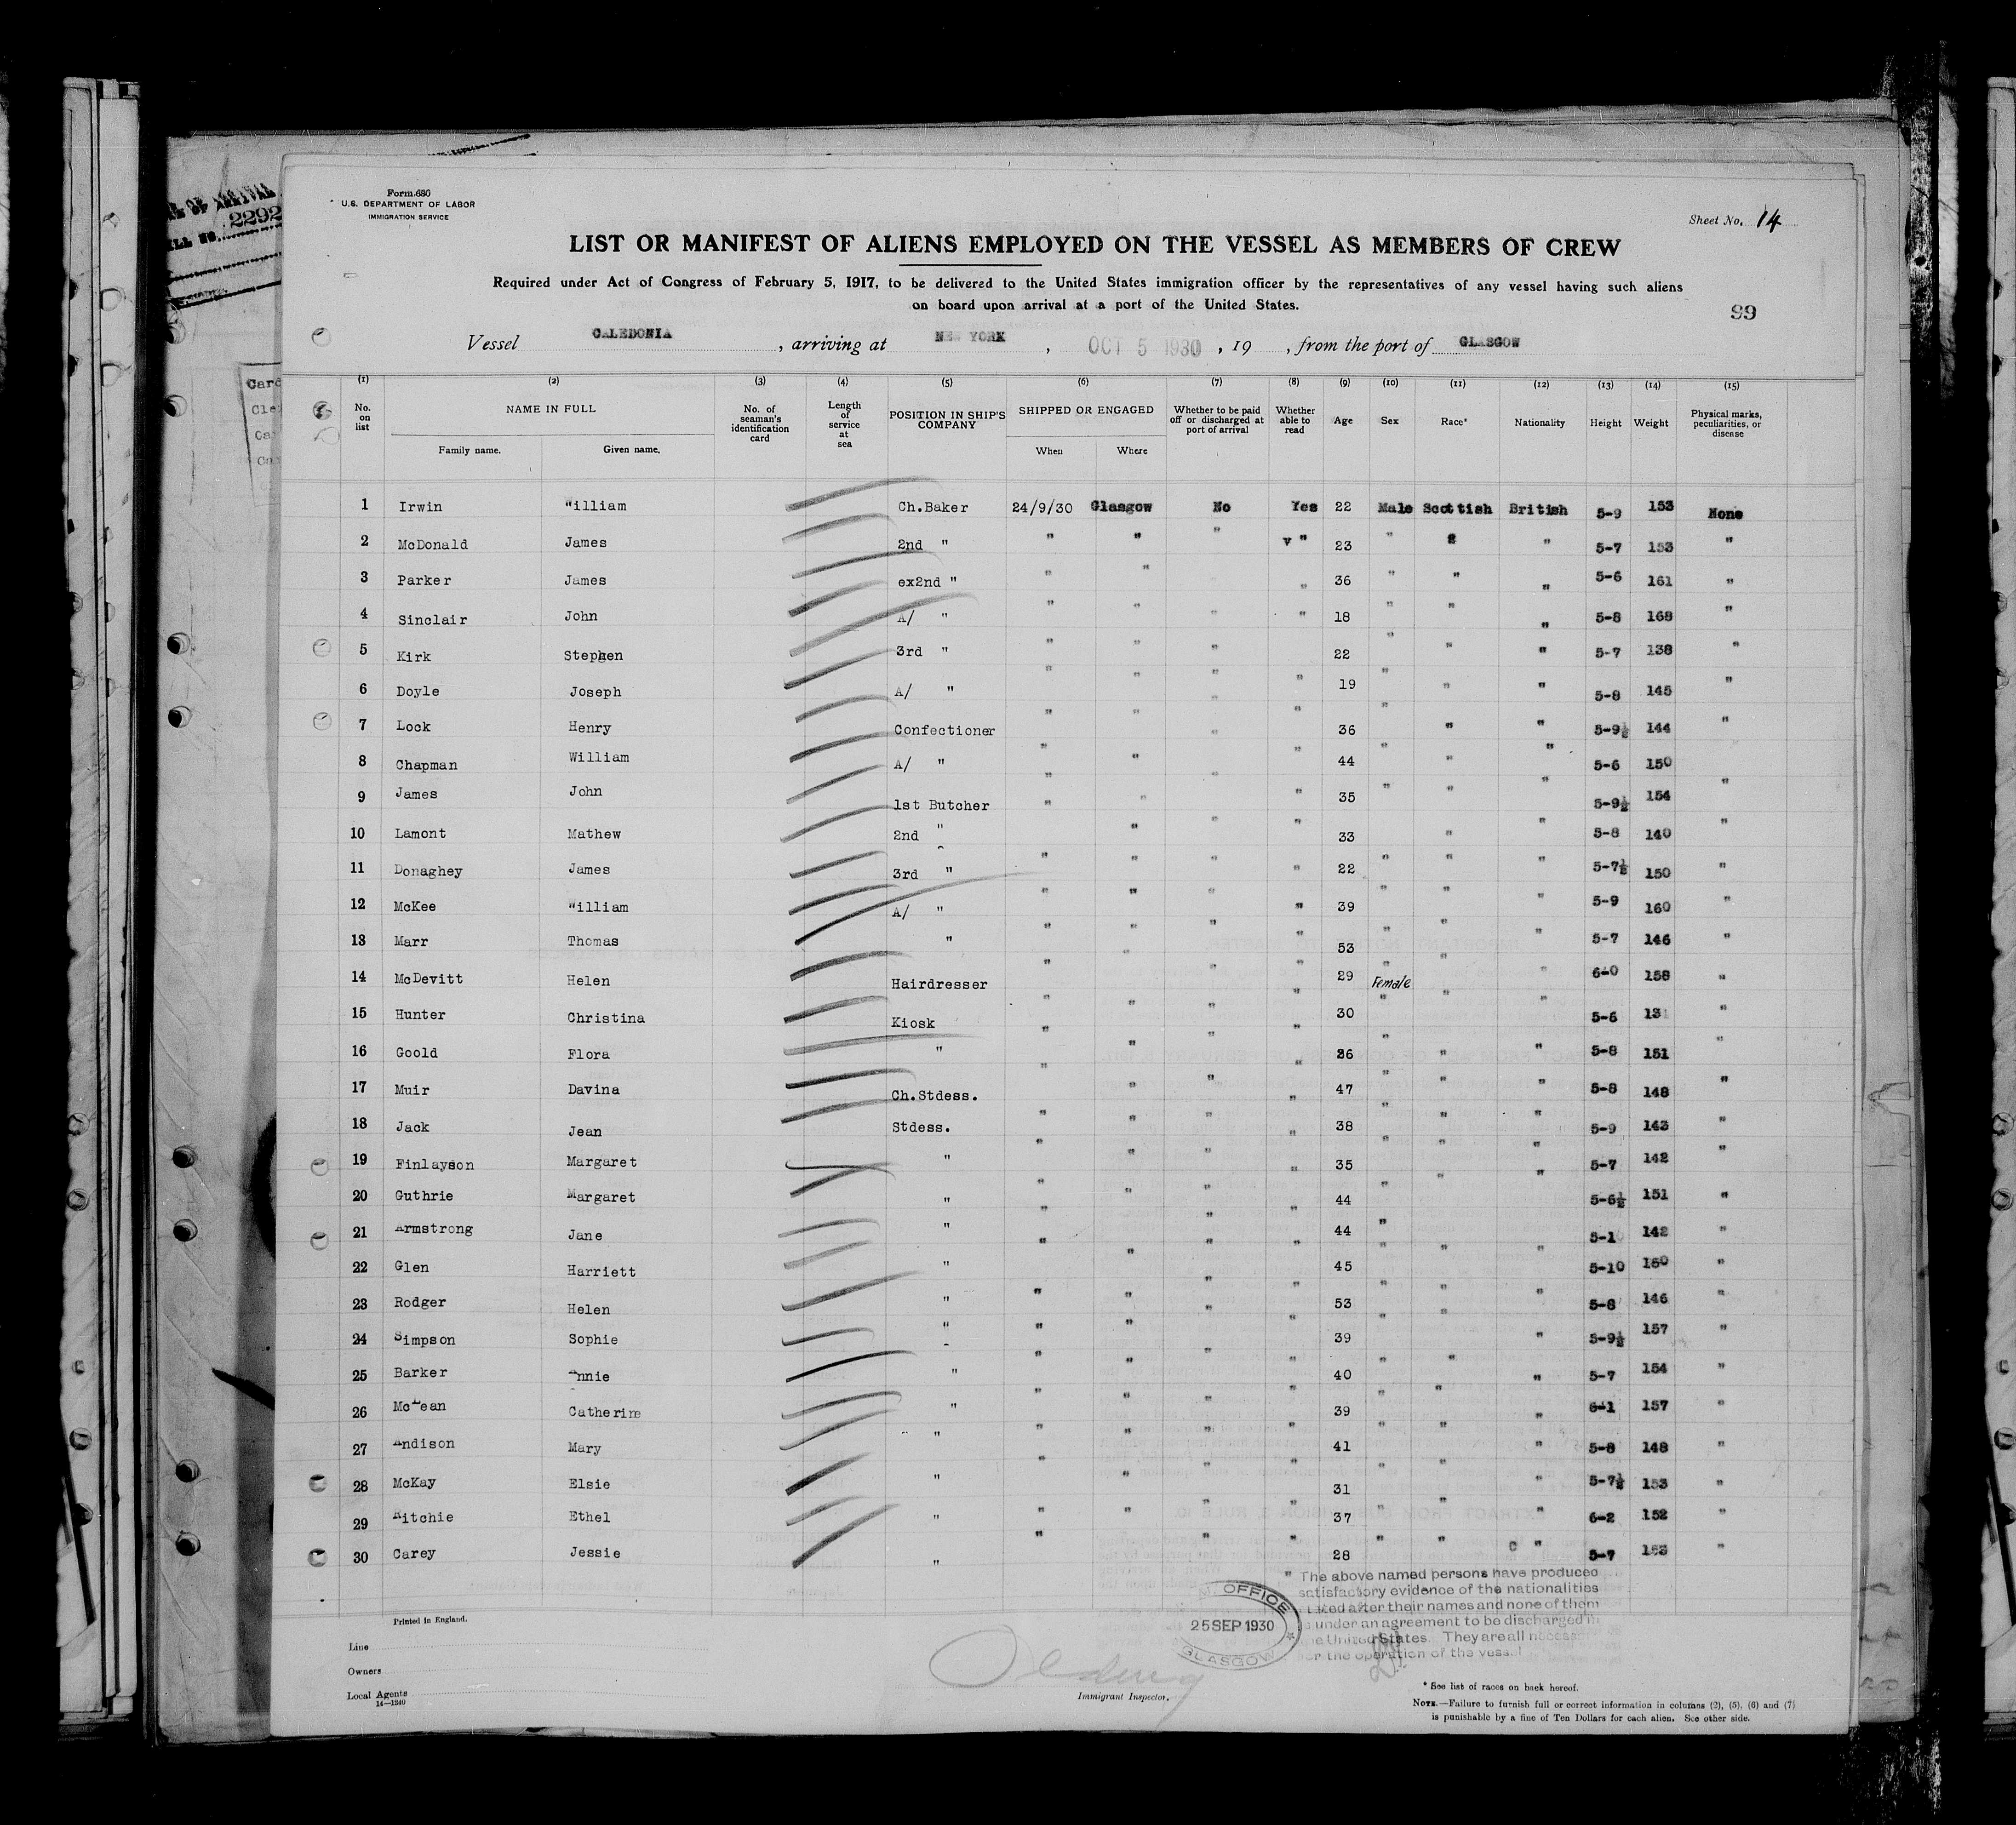 OF ARRIVAL
2292
Form 680
U.S. DEPARTMENT OF LABOR
IMMIGRATION SERVICE
Sheet No. 14
LIST OR MANIFEST OF ALIENS EMPLOYED ON THE VESSEL AS MEMBERS OF CREW
Required under Act of Congress of February 5, 1917, to be delivered to the United States immigration officer by the representatives of any vessel having such aliens
on board upon arrival at a port of the United States.
99
Vessel CALEDONIA, arriving at NEW YORK, OCT 5 1930, 19 , from the port of GLASGOW
(1) (2) (3) (4) (5) (6) (7) (8) (9) (10) (11) (12) (13) (14) (15)
No. on list NAME IN FULL No. of seaman's identification card Length of service at sea POSITION IN SHIP'S COMPANY SHIPPED OR ENGAGED Whether to be paid off or discharged at port of arrival Whether able to read Age Sex Race* Nationality Height Weight Physical marks, peculiarities, or disease
Family name. Given name. When Where
1 Irwin William Ch.Baker 24/9/30 Glasgow No Yes 22 Male Scottish British 5-9 153 None
2 McDonald James 2nd " " " " v " 23 " " 5-7 153 "
3 Parker James ex2nd " " " " 36 " " " 5-6 161 "
4 Sinclair John A/ " " " " " 18 " " " 5-8 168 "
5 Kirk Stephen 3rd " " " " 22 " " " 5-7 138 "
6 Doyle Joseph A/ " " " " " 19 " " " 5-8 145 "
7 Lock Henry Confectioner " " " " 36 " " " 5-9½ 144 "
8 Chapman William A/ " " " " 44 " " " 5-6 150
9 James John 1st Butcher " " " " 35 " " " 5-9½ 154 "
10 Lamont Mathew 2nd " " " " 33 " " 5-8 140 "
11 Donaghey James 3rd " " " " " 22 " " " 5-7½ 150 "
12 McKee William A/ " " " " " 39 " " " 5-9 160 "
13 Marr Thomas " " " " " 53 " " " 5-7 146 "
14 McDevitt Helen Hairdresser " " " 29 Female " " 6-0 158 "
15 Hunter Christina Kiosk " " " " 30 " " " 5-6 "
16 Goold Flora " " " " " 26 " " " 5-8 151 "
17 Muir Davina Ch.Stdess. " " " " 47 " " " 5-8 148 "
18 Jack Jean Stdess. " " " " 38 " " " 5-9 143 "
19 Finlayson Margaret " " " " " 35 " " " 5-7 142 "
20 Guthrie Margaret " " " " 44 " 5-6½ 151 "
21 Armstrong Jane " " " " 44 " 5-1 142 "
22 Glen Harriett " " " " " 45 " " " 5-10 150 "
23 Rodger Helen " " " " " 53 " " " 5-8 146 "
24 Simpson Sophie " " " " " 39 " " " 5-9½ 157 "
25 Barker Annie " " " " " 40 " " " 5-7 154 "
26 McLean Catherine " " " " " 39 " " " 6-1 157 "
27 Andison Mary " " " " " 41 " " " 5-8 148 "
28 McKay Elsie " " " " " 31 " " " 5-7½ 153 "
29 Ritchie Ethel " " " " " 37 " " " 6-2 152 "
30 Carey Jessie " " " " 28 " " C " 5-7 153 "
" The above named persons have produced
satisfactory evidence of the nationalities
stated after their names and none of them
under an agreement to be discharged in
the United States. They are all necess
for the operation of the vessel
OFFICE
25 SEP 1930
GLASGOW
Printed in England.
Line
Owners
Local Agents
14—1240
Immigrant Inspector.
* See list of races on back hereof.
NOTE.—Failure to furnish full or correct information in columns (2), (5), (6) and (7)
is punishable by a fine of Ten Dollars for each alien. See other side.